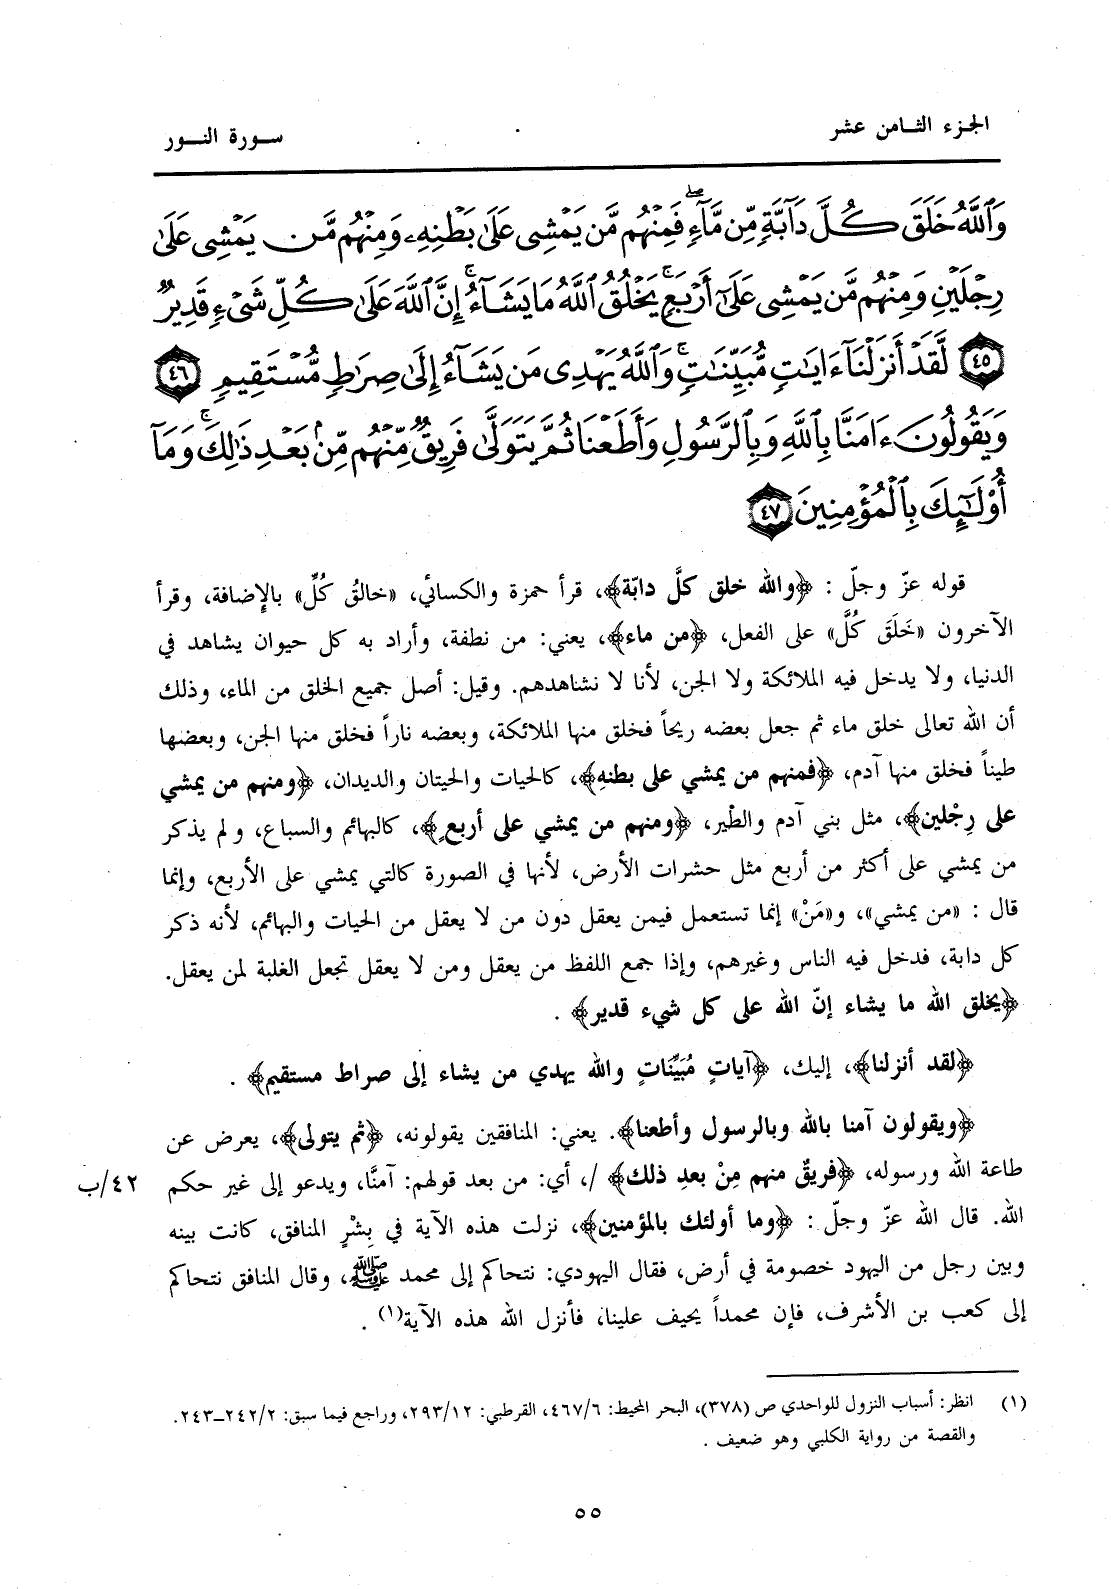 الجزء الثامن عشر
سورة النور
وَٱللَّهُ خَلَقَ كُلَّ دَآبَّةٍ مِّن مَّآءٍ ۖ فَمِنْهُم مَّن يَمْشِى عَلَىٰ بَطْنِهِۦ وَمِنْهُم مَّن يَمْشِى عَلَىٰ
رِجْلَيْنِ وَمِنْهُم مَّن يَمْشِى عَلَىٰٓ أَرْبَعٍ ۚ يَخْلُقُ ٱللَّهُ مَا يَشَآءُ ۚ إِنَّ ٱللَّهَ عَلَىٰ كُلِّ شَىْءٍ قَدِيرٌ
٤٥ لَّقَدْ أَنزَلْنَآ ءَايَٰتٍ مُّبَيِّنَٰتٍ ۚ وَٱللَّهُ يَهْدِى مَن يَشَآءُ إِلَىٰ صِرَٰطٍ مُّسْتَقِيمٍ ٤٦
وَيَقُولُونَ ءَامَنَّا بِٱللَّهِ وَبِٱلرَّسُولِ وَأَطَعْنَا ثُمَّ يَتَوَلَّىٰ فَرِيقٌ مِّنْهُم مِّنۢ بَعْدِ ذَٰلِكَ ۚ وَمَآ
أُو۟لَٰٓئِكَ بِٱلْمُؤْمِنِينَ ٤٧
قوله عزّ وجلّ : ﴿والله خلق كلَّ دابّة﴾، قرأ حمزة والكسائي، «خالقُ كُلِّ» بالإضافة، وقرأ
الآخرون «خَلَقَ كُلَّ» على الفعل، ﴿من ماء﴾، يعني: من نطفة، وأراد به كل حيوان يشاهد في
الدنيا، ولا يدخل فيه الملائكة ولا الجن، لأنا لا نشاهدهم. وقيل: أصل جميع الخلق من الماء، وذلك
أن الله تعالى خلق ماء ثم جعل بعضه ريحاً فخلق منها الملائكة، وبعضه ناراً فخلق منها الجن، وبعضها
طيناً فخلق منها آدم، ﴿فمنهم من يمشي على بطنهِ﴾، كالحيات والحيتان والديدان، ﴿ومنهم من يمشي
على رِجْلين﴾، مثل بني آدم والطْير، ﴿ومنهم من يمشي على أربعٍ﴾، كالبهائم والسباع، ولم يذكر
من يمشي على أكثر من أربع مثل حشرات الأرض، لأنها في الصورة كالتي يمشي على الأربع، وإنما
قال : «من يمشي»، و«مَنْ» إنما تستعمل فيمن يعقل دون من لا يعقل من الحيات والبهائم، لأنه ذكر
كل دابة، فدخل فيه الناس وغيرهم، وإذا جمع اللفظ من يعقل ومن لا يعقل تجعل الغلبة لمن يعقل.
﴿يخلق الله ما يشاء إنّ الله على كل شيء قدير﴾ .
﴿لقد أنزلنا﴾، إليك، ﴿آياتٍ مُبَيِّنَاتٍ والله يهدي من يشاء إلى صراط مستقيم﴾ .
﴿ويقولون آمنا بالله وبالرسول وأطعنا﴾. يعني: المنافقين يقولونه، ﴿ثم يتولى﴾، يعرض عن
طاعة الله ورسوله، ﴿فريقٌ منهم مِنْ بعدِ ذلك﴾ /، أي: من بعد قولهم: آمنَّا، ويدعو إلى غير حكم
٤٢/ب
الله. قال الله عزّ وجلّ : ﴿وما أولئك بالمؤمنين﴾، نزلت هذه الآية في بِشْرٍ المنافق، كانت بينه
وبين رجل من اليهود خصومة في أرض، فقال اليهودي: نتحاكم إلى محمد ﷺ، وقال المنافق نتحاكم
إلى كعب بن الأشرف، فإن محمداً يحيف علينا، فأنزل الله هذه الآية(١) .
(١) انظر: أسباب النزول للواحدي ص (٣٧٨)، البحر المحيط: ٤٦٧/٦، القرطبي: ٢٩٣/١٢، وراجع فيما سبق: ٢٤٢/٢-٢٤٣.
والقصة من رواية الكلبي وهو ضعيف .
٥٥